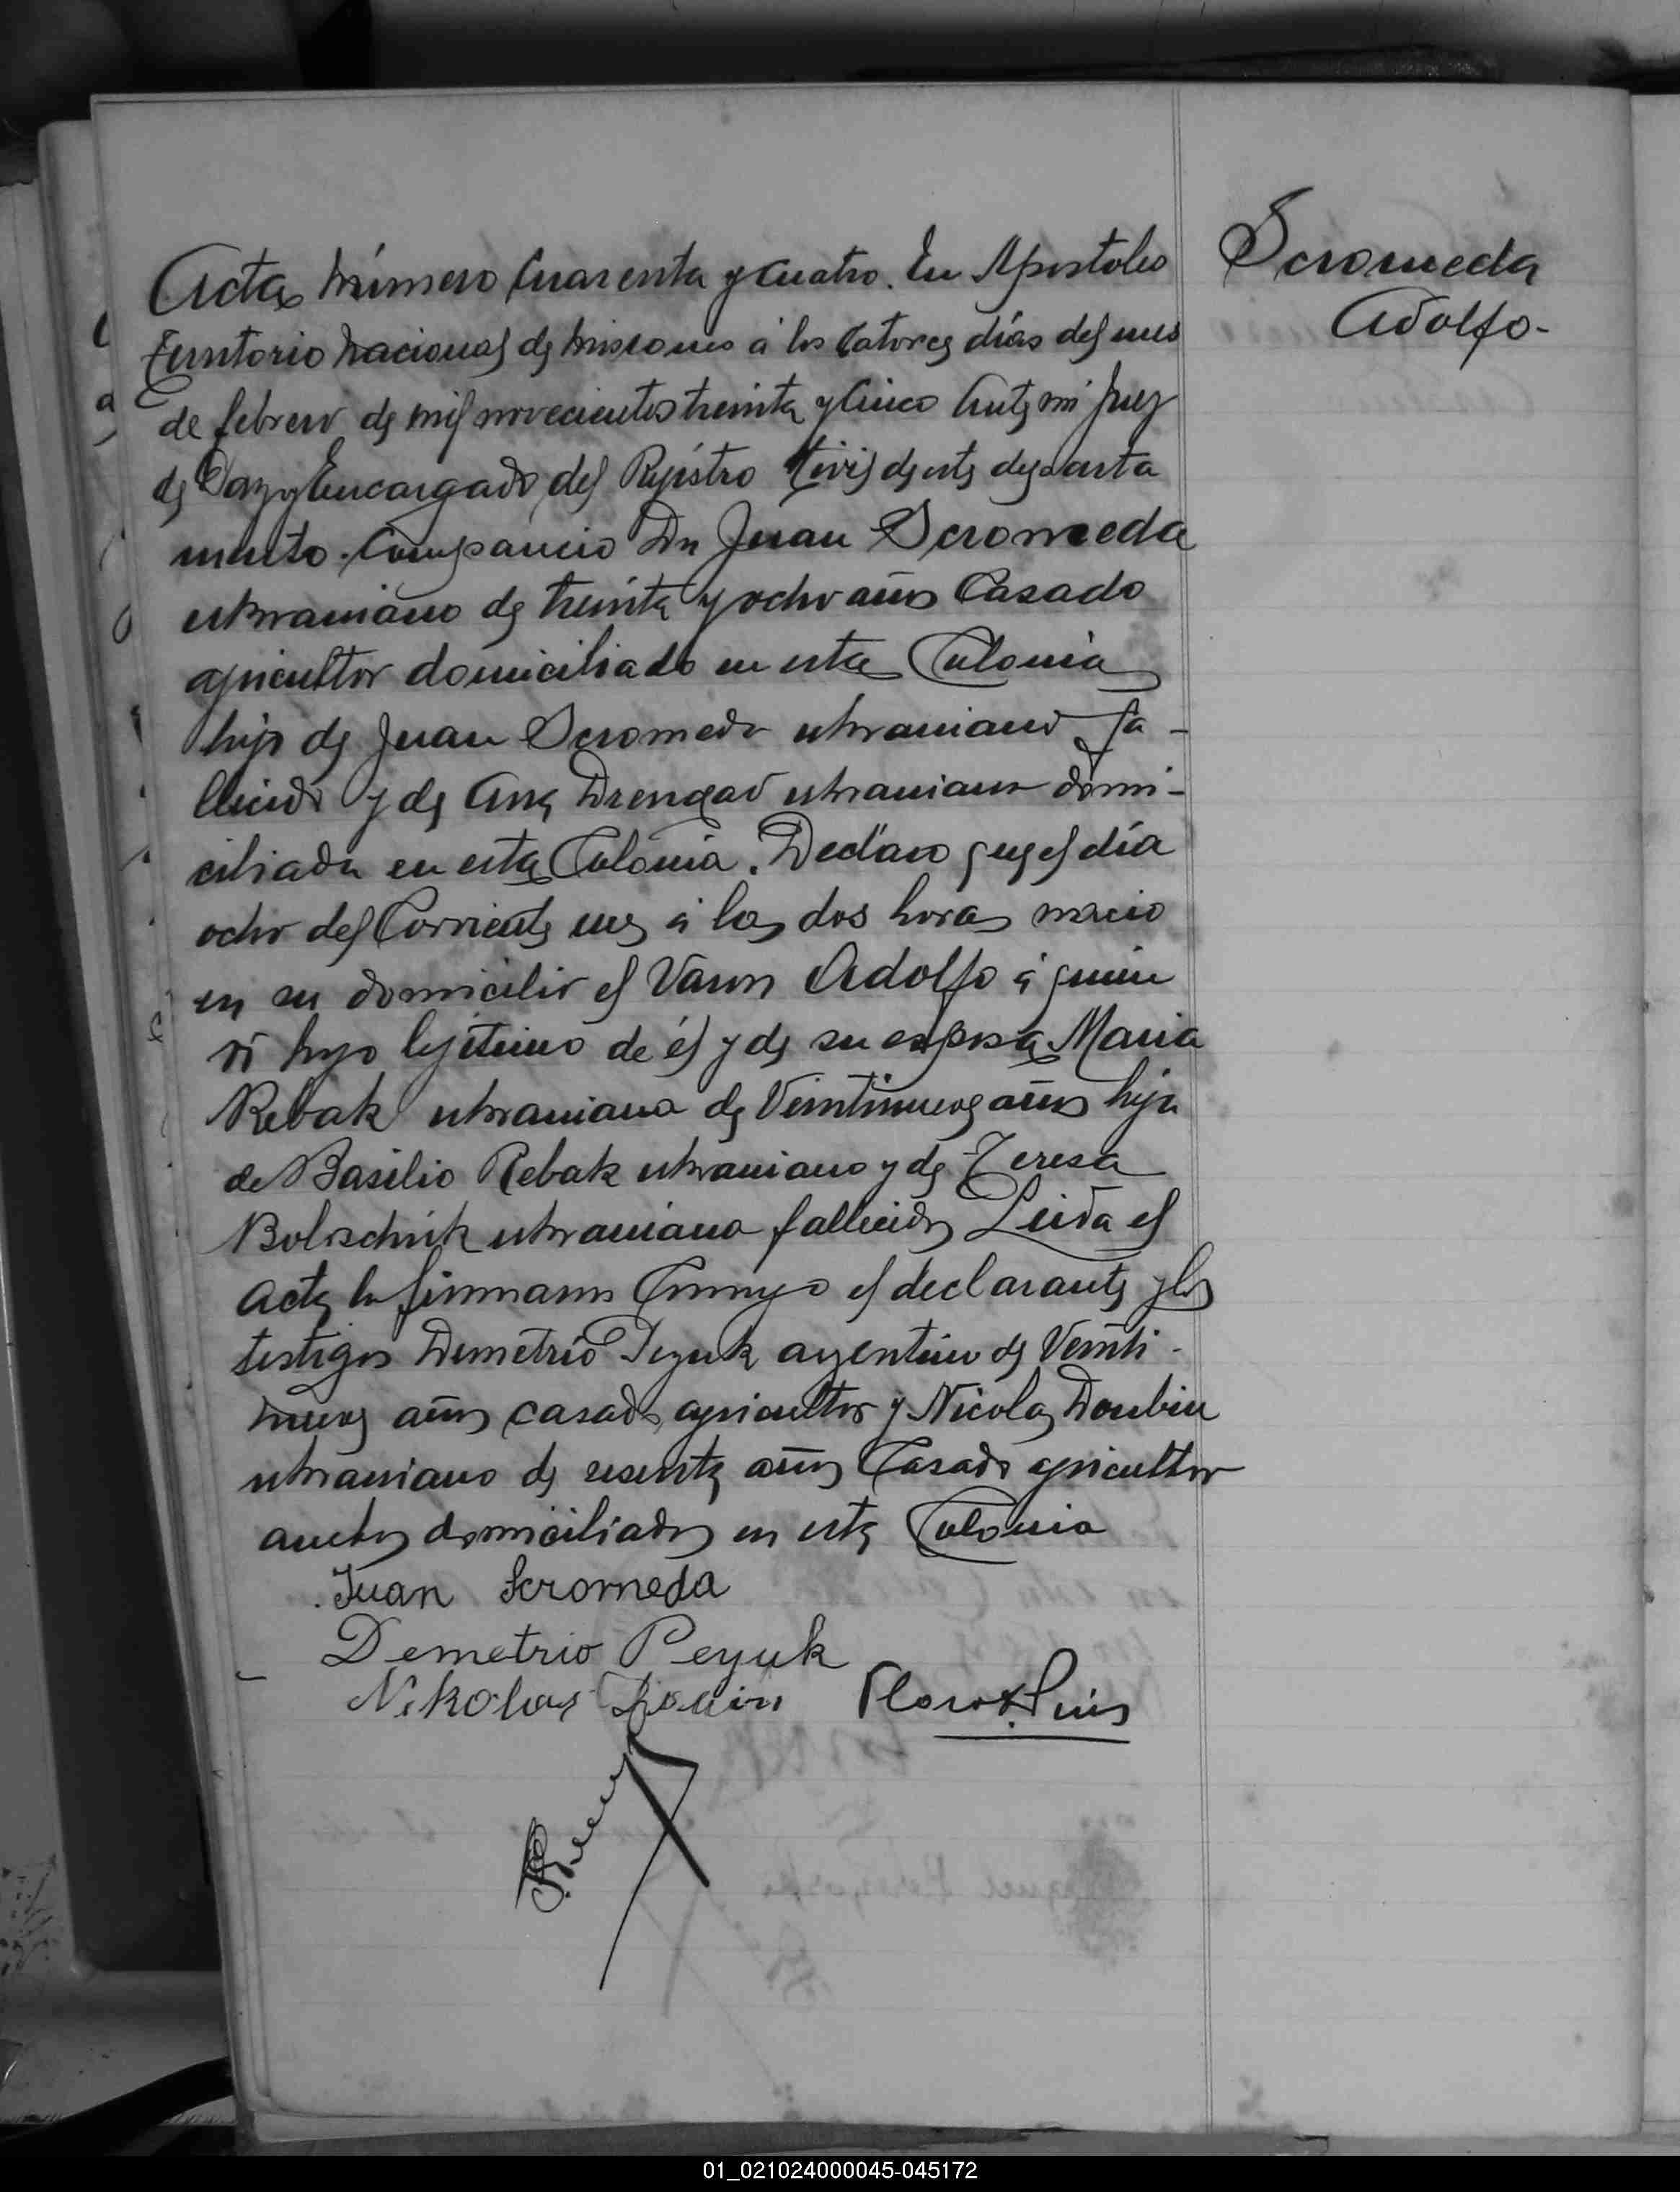 Scromeda
Adolfo-
Acta Número Cuarenta y Cuatro. En Apostoles
Territorio Nacional de Misiones á los Catorce días del mes
de febrero de mil novecientos treinta y Cinco Ante mi Juez
de Paz y Encargado del Rejistro Civil de este departa
mento. Comparecio Dn Juan Scromeda
ukraniano de treinta y ocho años Casado
agricultor domiciliado en esta Colonia
hijo de Juan Scromeda ukraniano fa-
llecido y de Ana Drengad ukraniana domi-
ciliada en esta Colonia. Declaro que el día
ocho del Corriente mes á las dos horas nacio
en su domicilio el Varon Adolfo á quien
vi hijo lejitimo de él y de su esposa Maria
Rebak ukraniana de Veintinueve años hija
de Basilio Rebak ukraniano y de Teresa
ukraniana fallecidos Leida el
Acta la firmaron Conmigo el declarante y los
testigos Demetrio Peyuk argentino de Veinti-
nueve años casado agricultor y Nicolas
ukraniano de sesenta años Casado agricultor
ambos domiciliados en esta Colonia
Juan Scromeda
Demetrio Peyuk
Nikolas
01_021024000045-045172